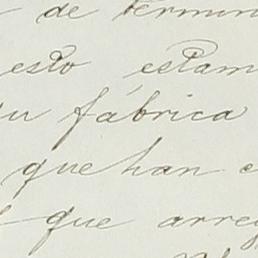 de termin
esto estam
fábrica
que han
que arreg